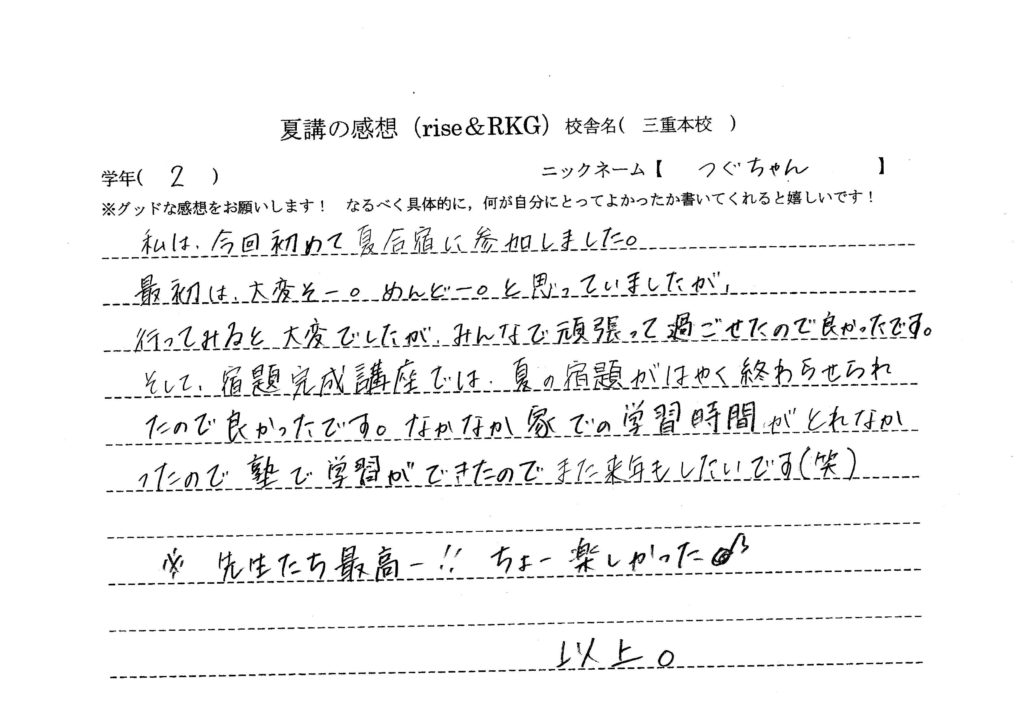 夏講の感想（rise＆RKG）校舎名(　三重本校　)
学年(　2　)　ニックネーム【　つぐちゃん　】
※グッドな感想をお願いします！　なるべく具体的に，何が自分にとってよかったか書いてくれると嬉しいです！
私は、今回初めて夏合宿に参加しました。
最初は、大変そー。めんどー。と思っていましたが、
行ってみると大変でしたが、みんなで頑張って過ごせたので良かったです。
そして、宿題完成講座では、夏の宿題がはやく終わらせられ
たので良かったです。なかなか家での学習時間がとれなか
ったので塾で学習ができたのでまた来年もしたいです(笑)
※ 先生たち最高ー!! ちょー楽しかった♪
以上。